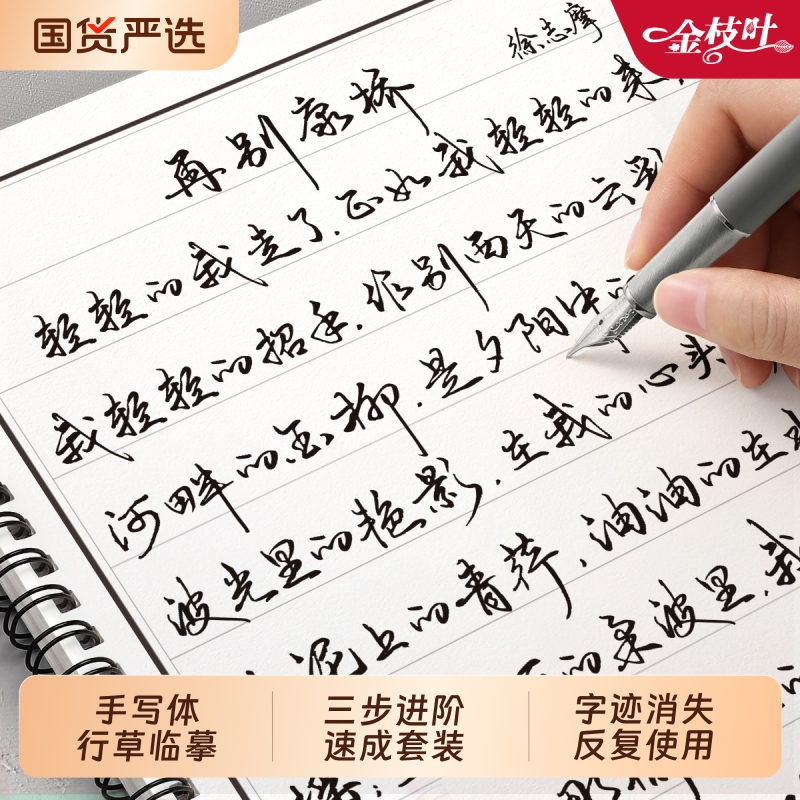 国货严选
金枝叶
徐志摩
再别康桥
轻轻的我走了,正如我轻轻的来,
我轻轻的招手,作别西天的云彩
河畔的金柳,是夕阳中的
波光里的艳影,在我的心头
泥上的青荇,油油的在水
的柔波里,我
手写体
行草临摹
三步进阶
速成套装
字迹消失
反复使用